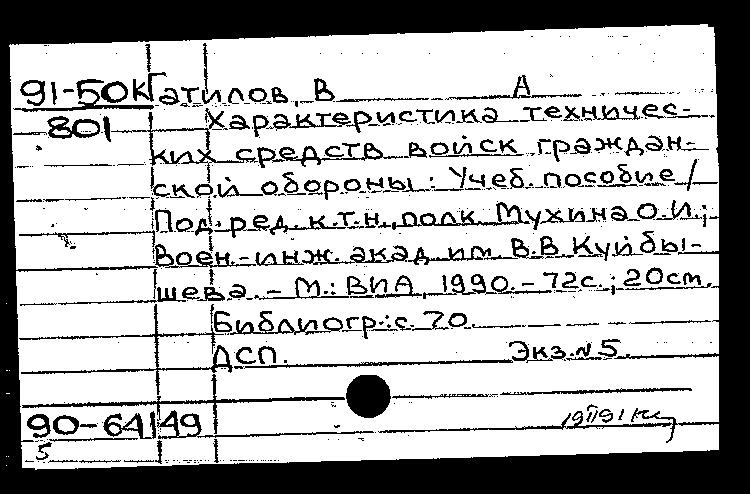 91-50К Гатилов, В А
801 Характеристика техничес-
ких средств войск граждан-
ской обороны: Учеб. пособие /
Под. ред. к.т.н., полк. Мухина О.И.;
Воен.-инж. акад. им. В.В. Куйбы-
шева. – М.: ВИА, 1990. – 72с.; 20cm.
Библиогр.: с. 70.
ДСП. Экз. N 5.
90-64149
5